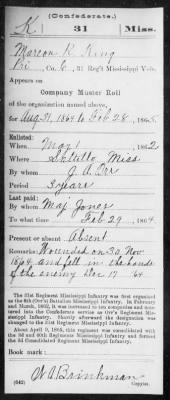 (Confederate.)
K 31 Miss.
Marcon R. King
Pri, Co. C, 31 Reg't Mississippi Vols.
Appears on
Company Muster Roll
of the organization named above,
for Aug 31, 1864 to Feb 28, 1865
Enlisted:
When May 1 1862
Where Saltillo Miss
By whom J. A. Orr
Period 3 years
Last paid:
By whom Maj. Jones
To what time Feb 29, 1864
Present or absent Absent
Remarks: Wounded on 30 Nov
1864, and fell in the hands
of the enemy Dec 17 64
The 31st Regiment Mississippi Infantry was first organized
as the 6th (Orr's) Battalion Mississippi Infantry. In February
and March, 1862, it was increased to ten companies and mus-
tered into the Confederate service as Orr's Regiment Mis-
sissippi Infantry. Shortly afterward the designation was
changed to the 31st Regiment Mississippi Infantry.
About April 9, 1865, this regiment was consolidated with the
3d and 40th Regiments Mississippi Infantry and formed
the 3d Consolidated Regiment Mississippi Infantry.
Book mark:
W A Brinkman
(642) Copyist.